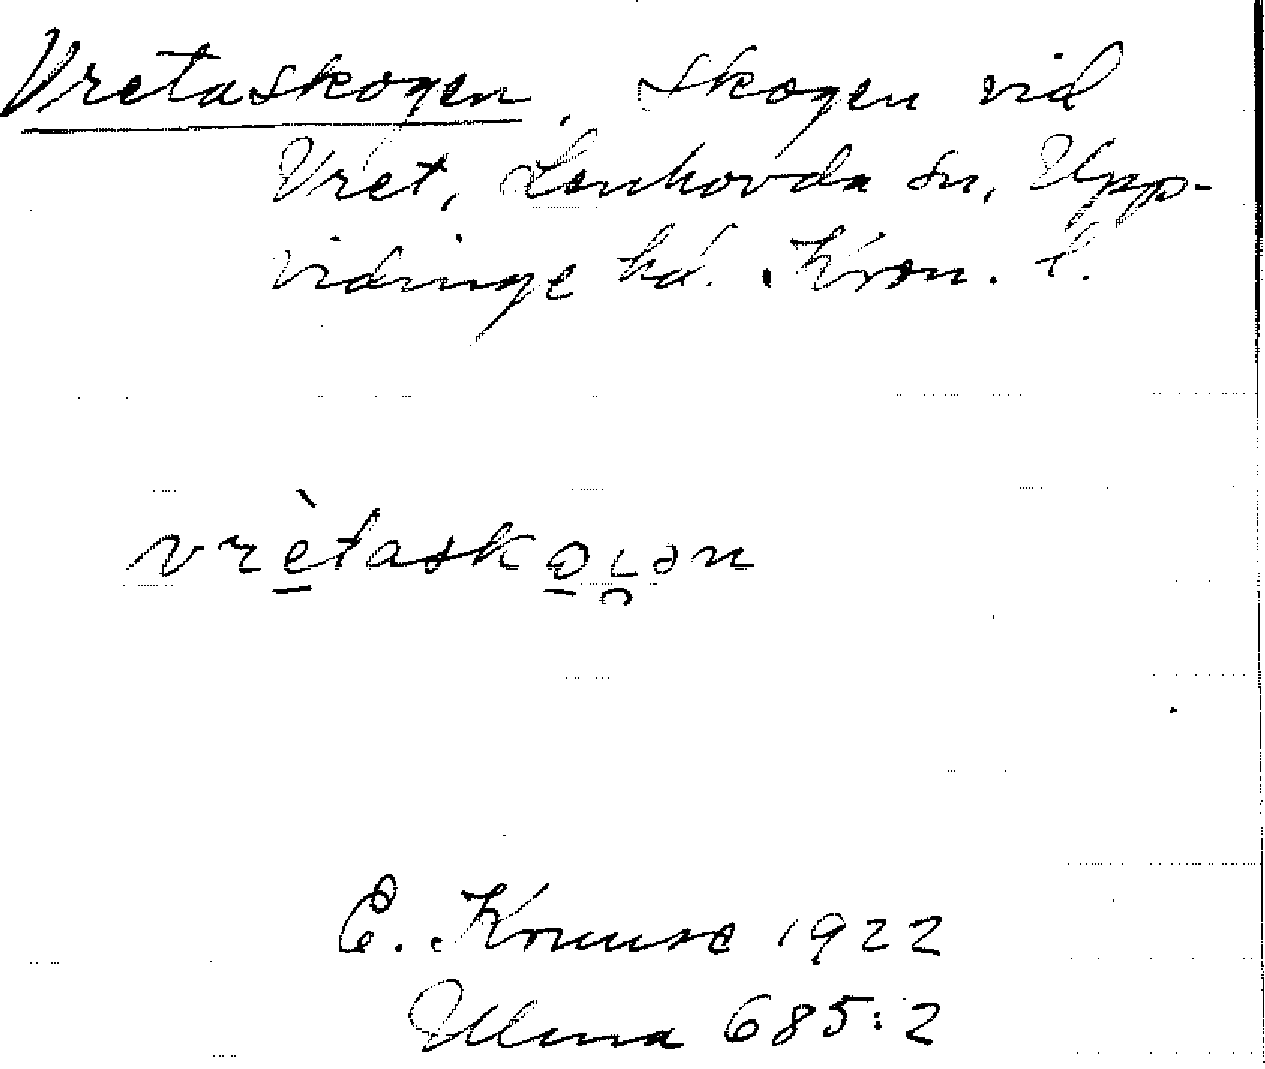 Vretaskogen, skogen vid
Vret, Lenhovda sn, Upp-
vidinge hd. Kron. l.
vrètaskoı̯ən
E. Kruuse 1922
Ulma 685:2